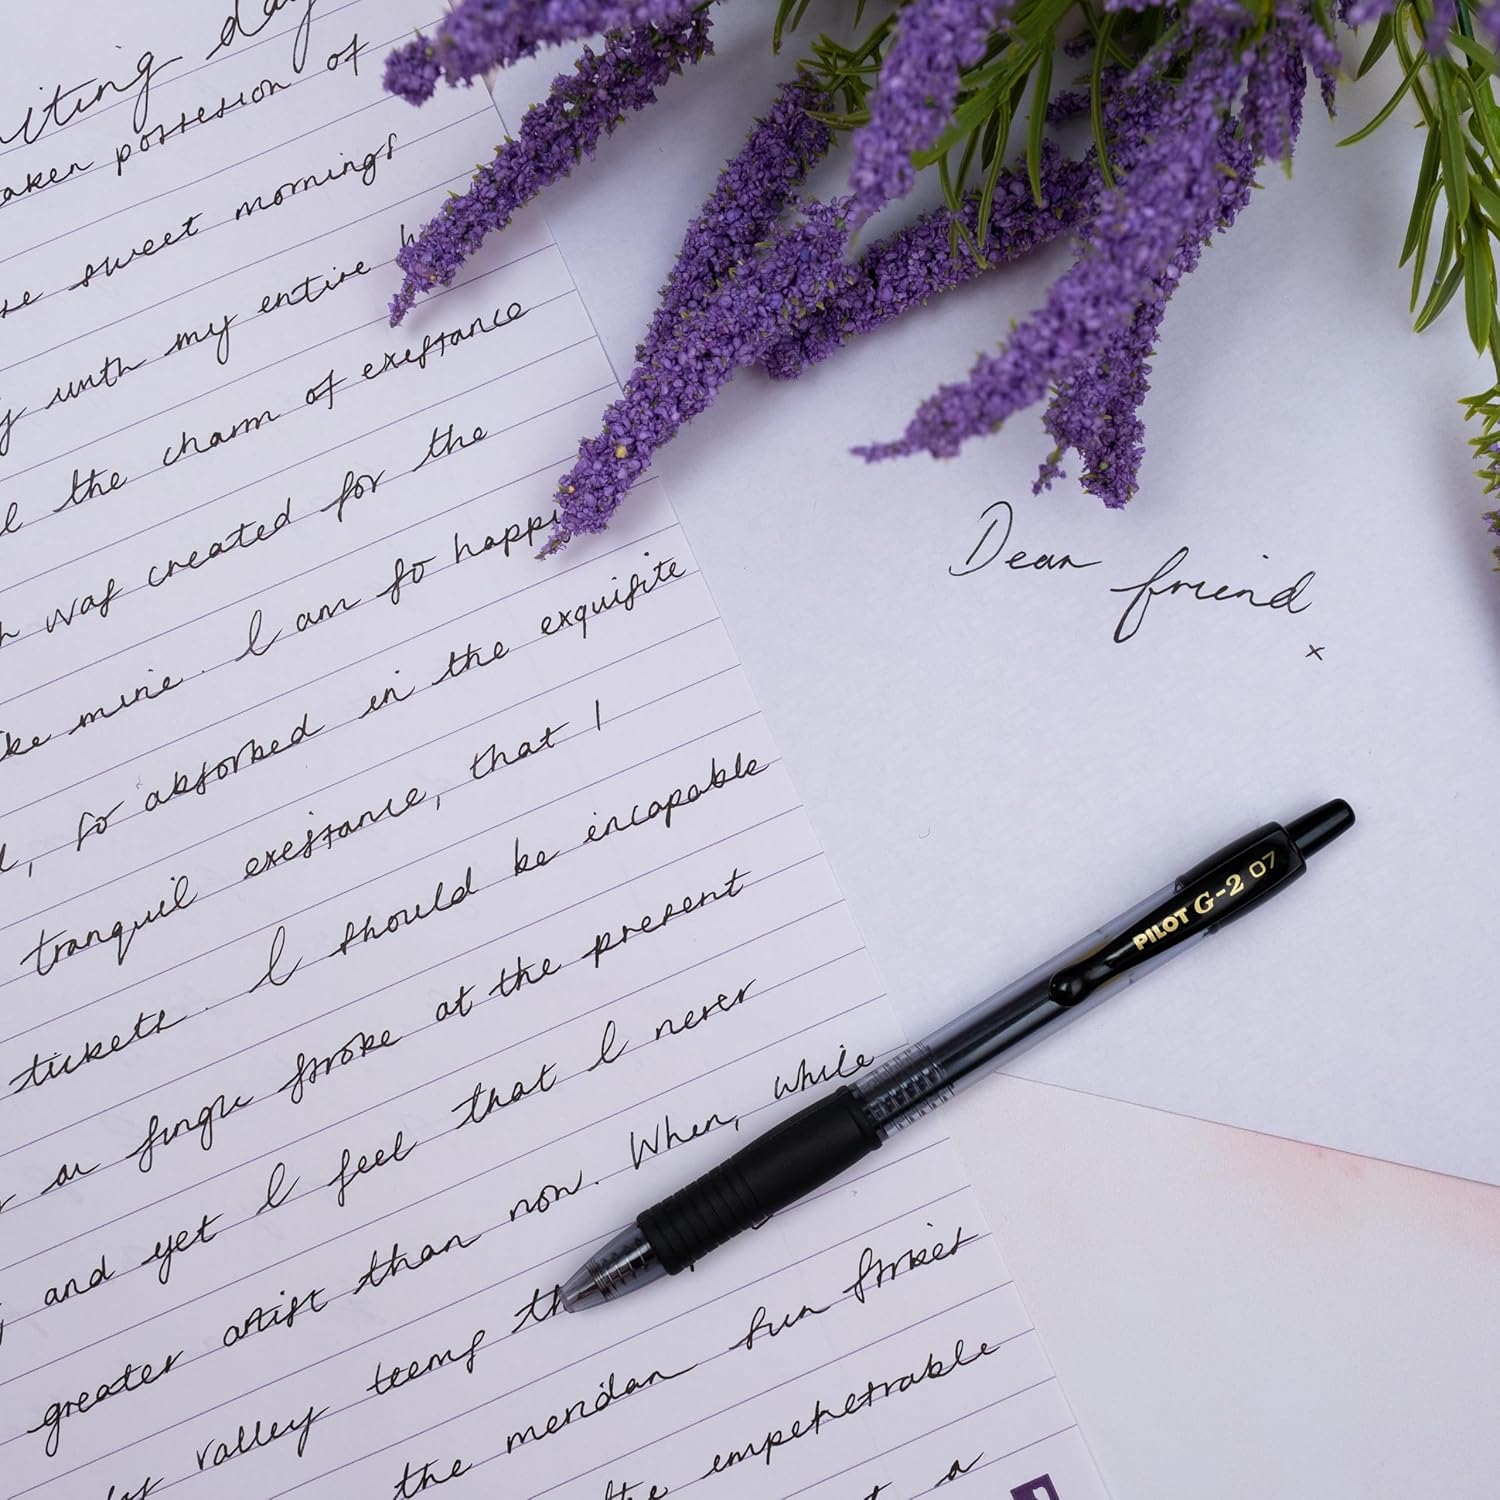 writing day
taken possession of
these sweet mornings
with my entire h
the charm of existance
was created for the
like mine. I am so happy
so absorbed in the exquisite
tranquil existance, that I
tickets. I should be incapable
a single stroke at the present
and yet I feel that I never
greater artist than now. When, while
valley teems th
the meridan sun strikes
the impenetrable
a
Dear friend
x
PILOT G-2 07